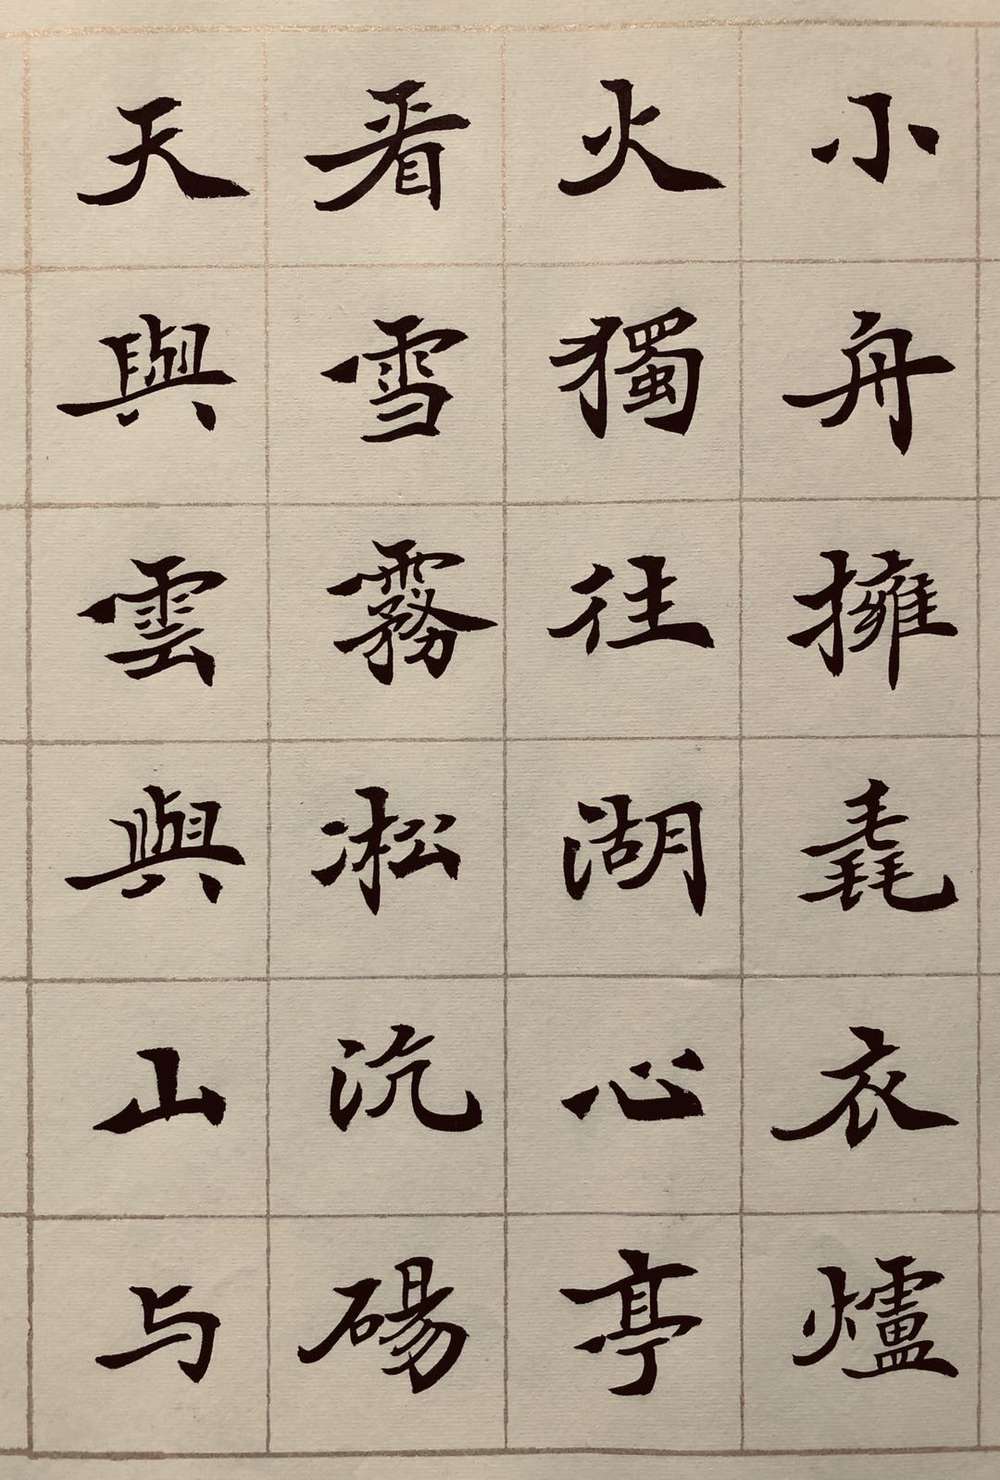 小舟擁毳衣爐
火獨往湖心亭
看雪霧凇沆碭
天與雲與山与